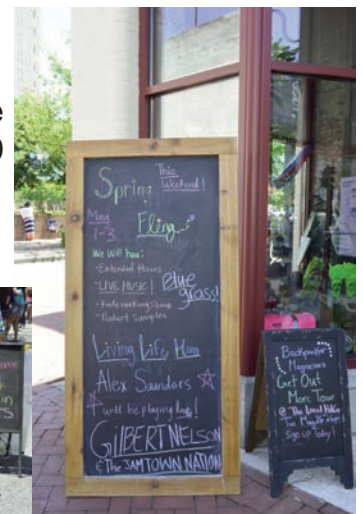 Spring This
Weekend!
May
1-3 Fling
We Will have:
-Extended Hours
-LIVE MUSIC! Blue
grass!
-Knife making demo
-Product Samples
Living Life Man
Alex Saunders
will be playing
GILBERT NELSON
& THE JAMTOWN NATION
Backpacker
Magazine's
Get Out
More Tour
@ The Local Hiker
Tue May 26
Sign up Today!